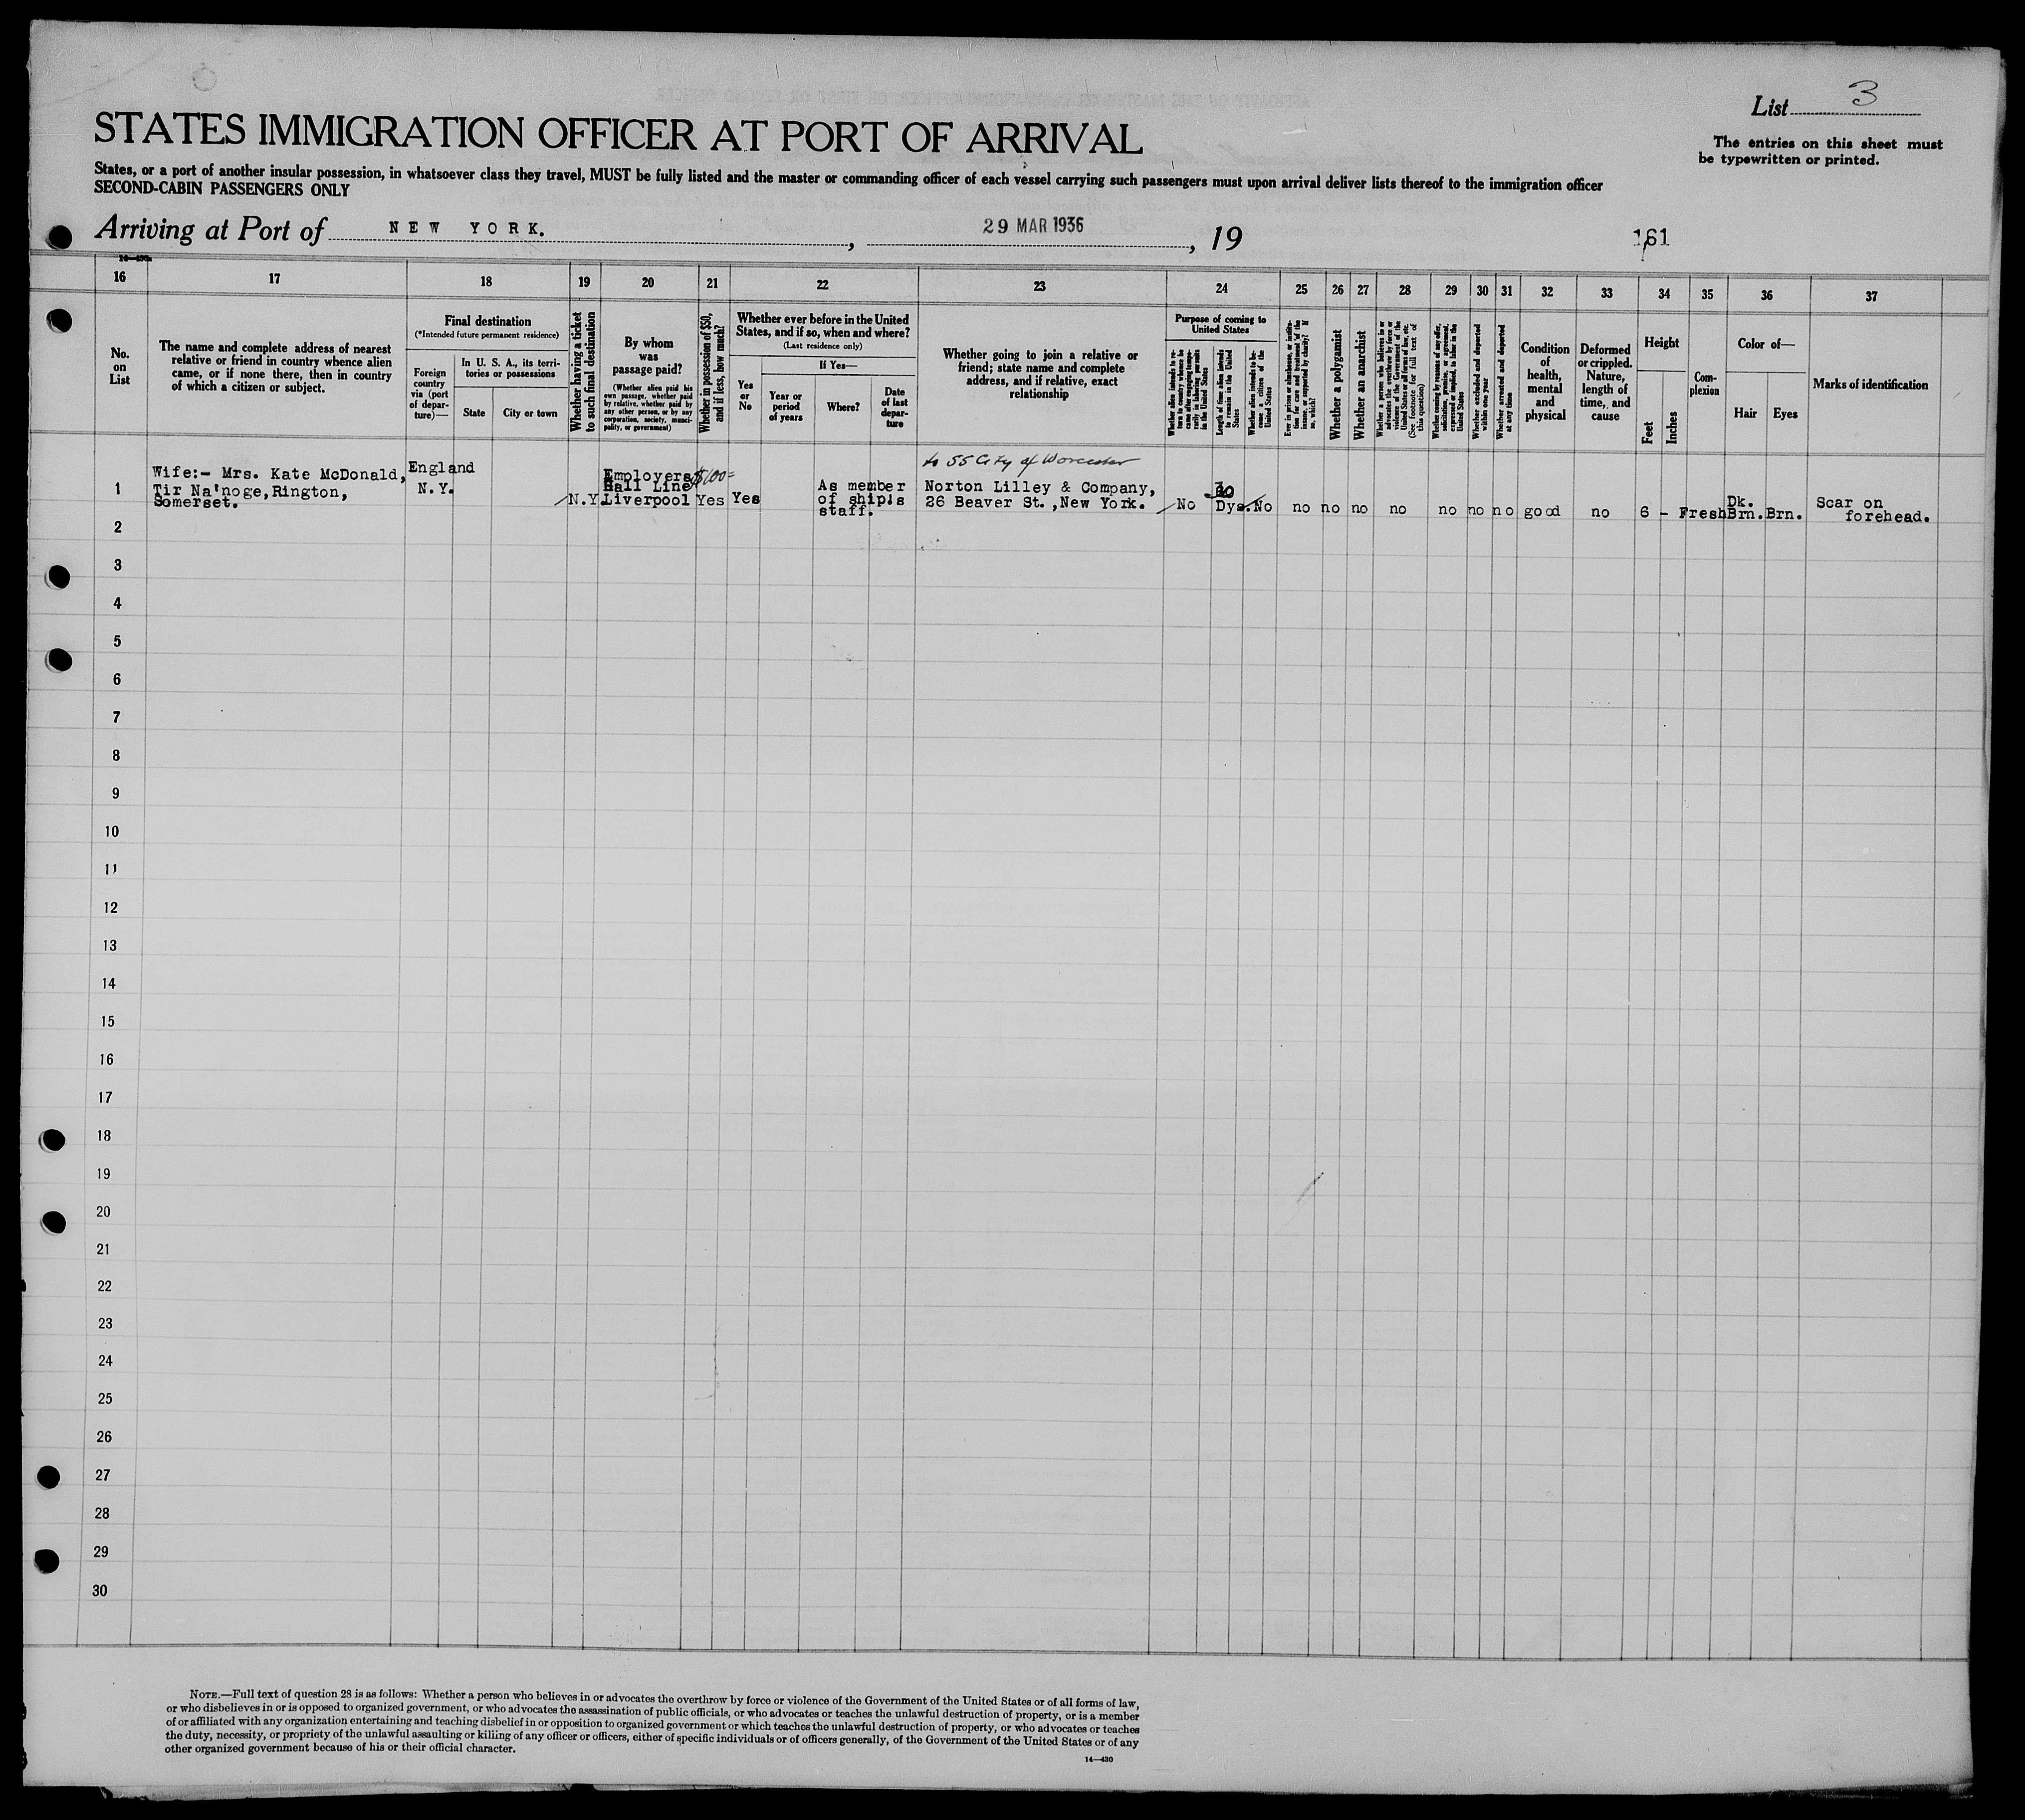 List 3
The entries on this sheet must
be typewritten or printed.
STATES IMMIGRATION OFFICER AT PORT OF ARRIVAL
States, or a port of another insular possession, in whatsoever class they travel, MUST be fully listed and the master or commanding officer of each vessel carrying such passengers must upon arrival deliver lists thereof to the immigration officer
SECOND-CABIN PASSENGERS ONLY
Arriving at Port of NEW YORK. , 29 MAR 1936 , 19
161
16 17 18 19 20 21 22 23 24 25 26 27 28 29 30 31 32 33 34 35 36 37
No.
on
List
The name and complete address of nearest
relative or friend in country whence alien
came, or if none there, then in country
of which a citizen or subject.
Final destination
(*Intended future permanent residence)
Foreign
country
via (port
of depar-
ture)—
In U. S. A., its terri-
tories or possessions
State
City or town
Whether having a ticket
to such final destination
By whom
was
passage paid?
(Whether alien paid his
own passage, whether paid
by relative, whether paid by
any other person, or by any
corporation, society, munici-
pality, or government)
Whether in possession of $50,
and if less, how much?
Whether ever before in the United
States, and if so, when and where?
(Last residence only)
Yes
or
No
If Yes—
Year or
period
of years
Where?
Date
of last
depar-
ture
Whether going to join a relative or
friend; state name and complete
address, and if relative, exact
relationship
Purpose of coming to
United States
Whether alien intends to re-
turn to country whence he
came after engaging tempo-
rarily in laboring pursuits
in the United States
Length of time alien intends
to remain in the United
States
Whether alien intends to be-
come a citizen of the
United States
Ever in prison or almshouse, or institu-
tion for care and treatment of the
insane, or supported by charity? If
so, which?
Whether a polygamist
Whether an anarchist
Whether a person who believes in or
advocates the overthrow by force or
violence of the Government of the
United States or all forms of law, etc.
(See footnote for full text of
this question)
Whether coming by reasons of any offer,
solicitation, promise, or agreement,
expressed or implied, to labor in the
United States
Whether excluded and deported
within one year
Whether arrested and deported
at any time
Condition
of
health,
mental
and
physical
Deformed
or crippled.
Nature,
length of
time, and
cause
Height
Feet
Inches
Com-
plexion
Color of—
Hair
Eyes
Marks of identification
1
Wife:- Mrs. Kate McDonald,
Tir Na'noge,Rington,
Somerset.
England
N.Y.
N.Y.
Employers
Hall Line
Liverpool
$100=
Yes
Yes
As member
of ship's
staff.
to SS City of Worcester
Norton Lilley & Company,
26 Beaver St.,New York.
No
Dys.
No
no no no no no no no good no 6 - Fresh
Dk.
Brn. Brn.
Scar on
forehead.
2
3
4
5
6
7
8
9
10
11
12
13
14
15
16
17
18
19
20
21
22
23
24
25
26
27
28
29
30
NOTE.—Full text of question 28 is as follows: Whether a person who believes in or advocates the overthrow by force or violence of the Government of the United States or of all forms of law,
or who disbelieves in or is opposed to organized government, or who advocates the assassination of public officials, or who advocates or teaches the unlawful destruction of property, or is a member
of or affiliated with any organization entertaining and teaching disbelief in or opposition to organized government or which teaches the unlawful destruction of property, or who advocates or teaches
the duty, necessity, or propriety of the unlawful assaulting or killing of any officer or officers, either of specific individuals or of officers generally, of the Government of the United States or of any
other organized government because of his or their official character.
14—430